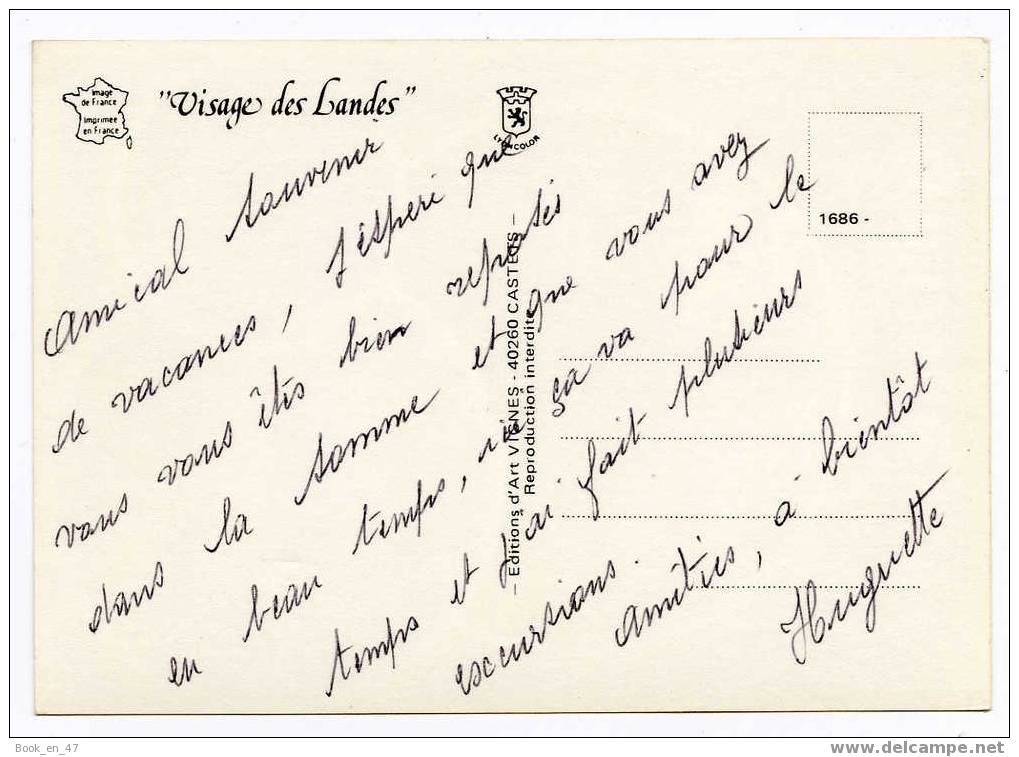 Image
de France
Imprimée
en France
"Visage des Landes"
LYONCOLOR
1686 -
– Editions d'Art VIGNES - 40260 CASTETS –
Reproduction interdite
Amical souvenir
de vacances, j'éspére que
vous vous êtes bien reposés
dans la somme et que vous avez
eu beau temps, ici ça va pour le
temps et j'ai fait plusieurs
excursions.
amitiés, à bientôt
Huguette
Book_en_47
www.delcampe.net